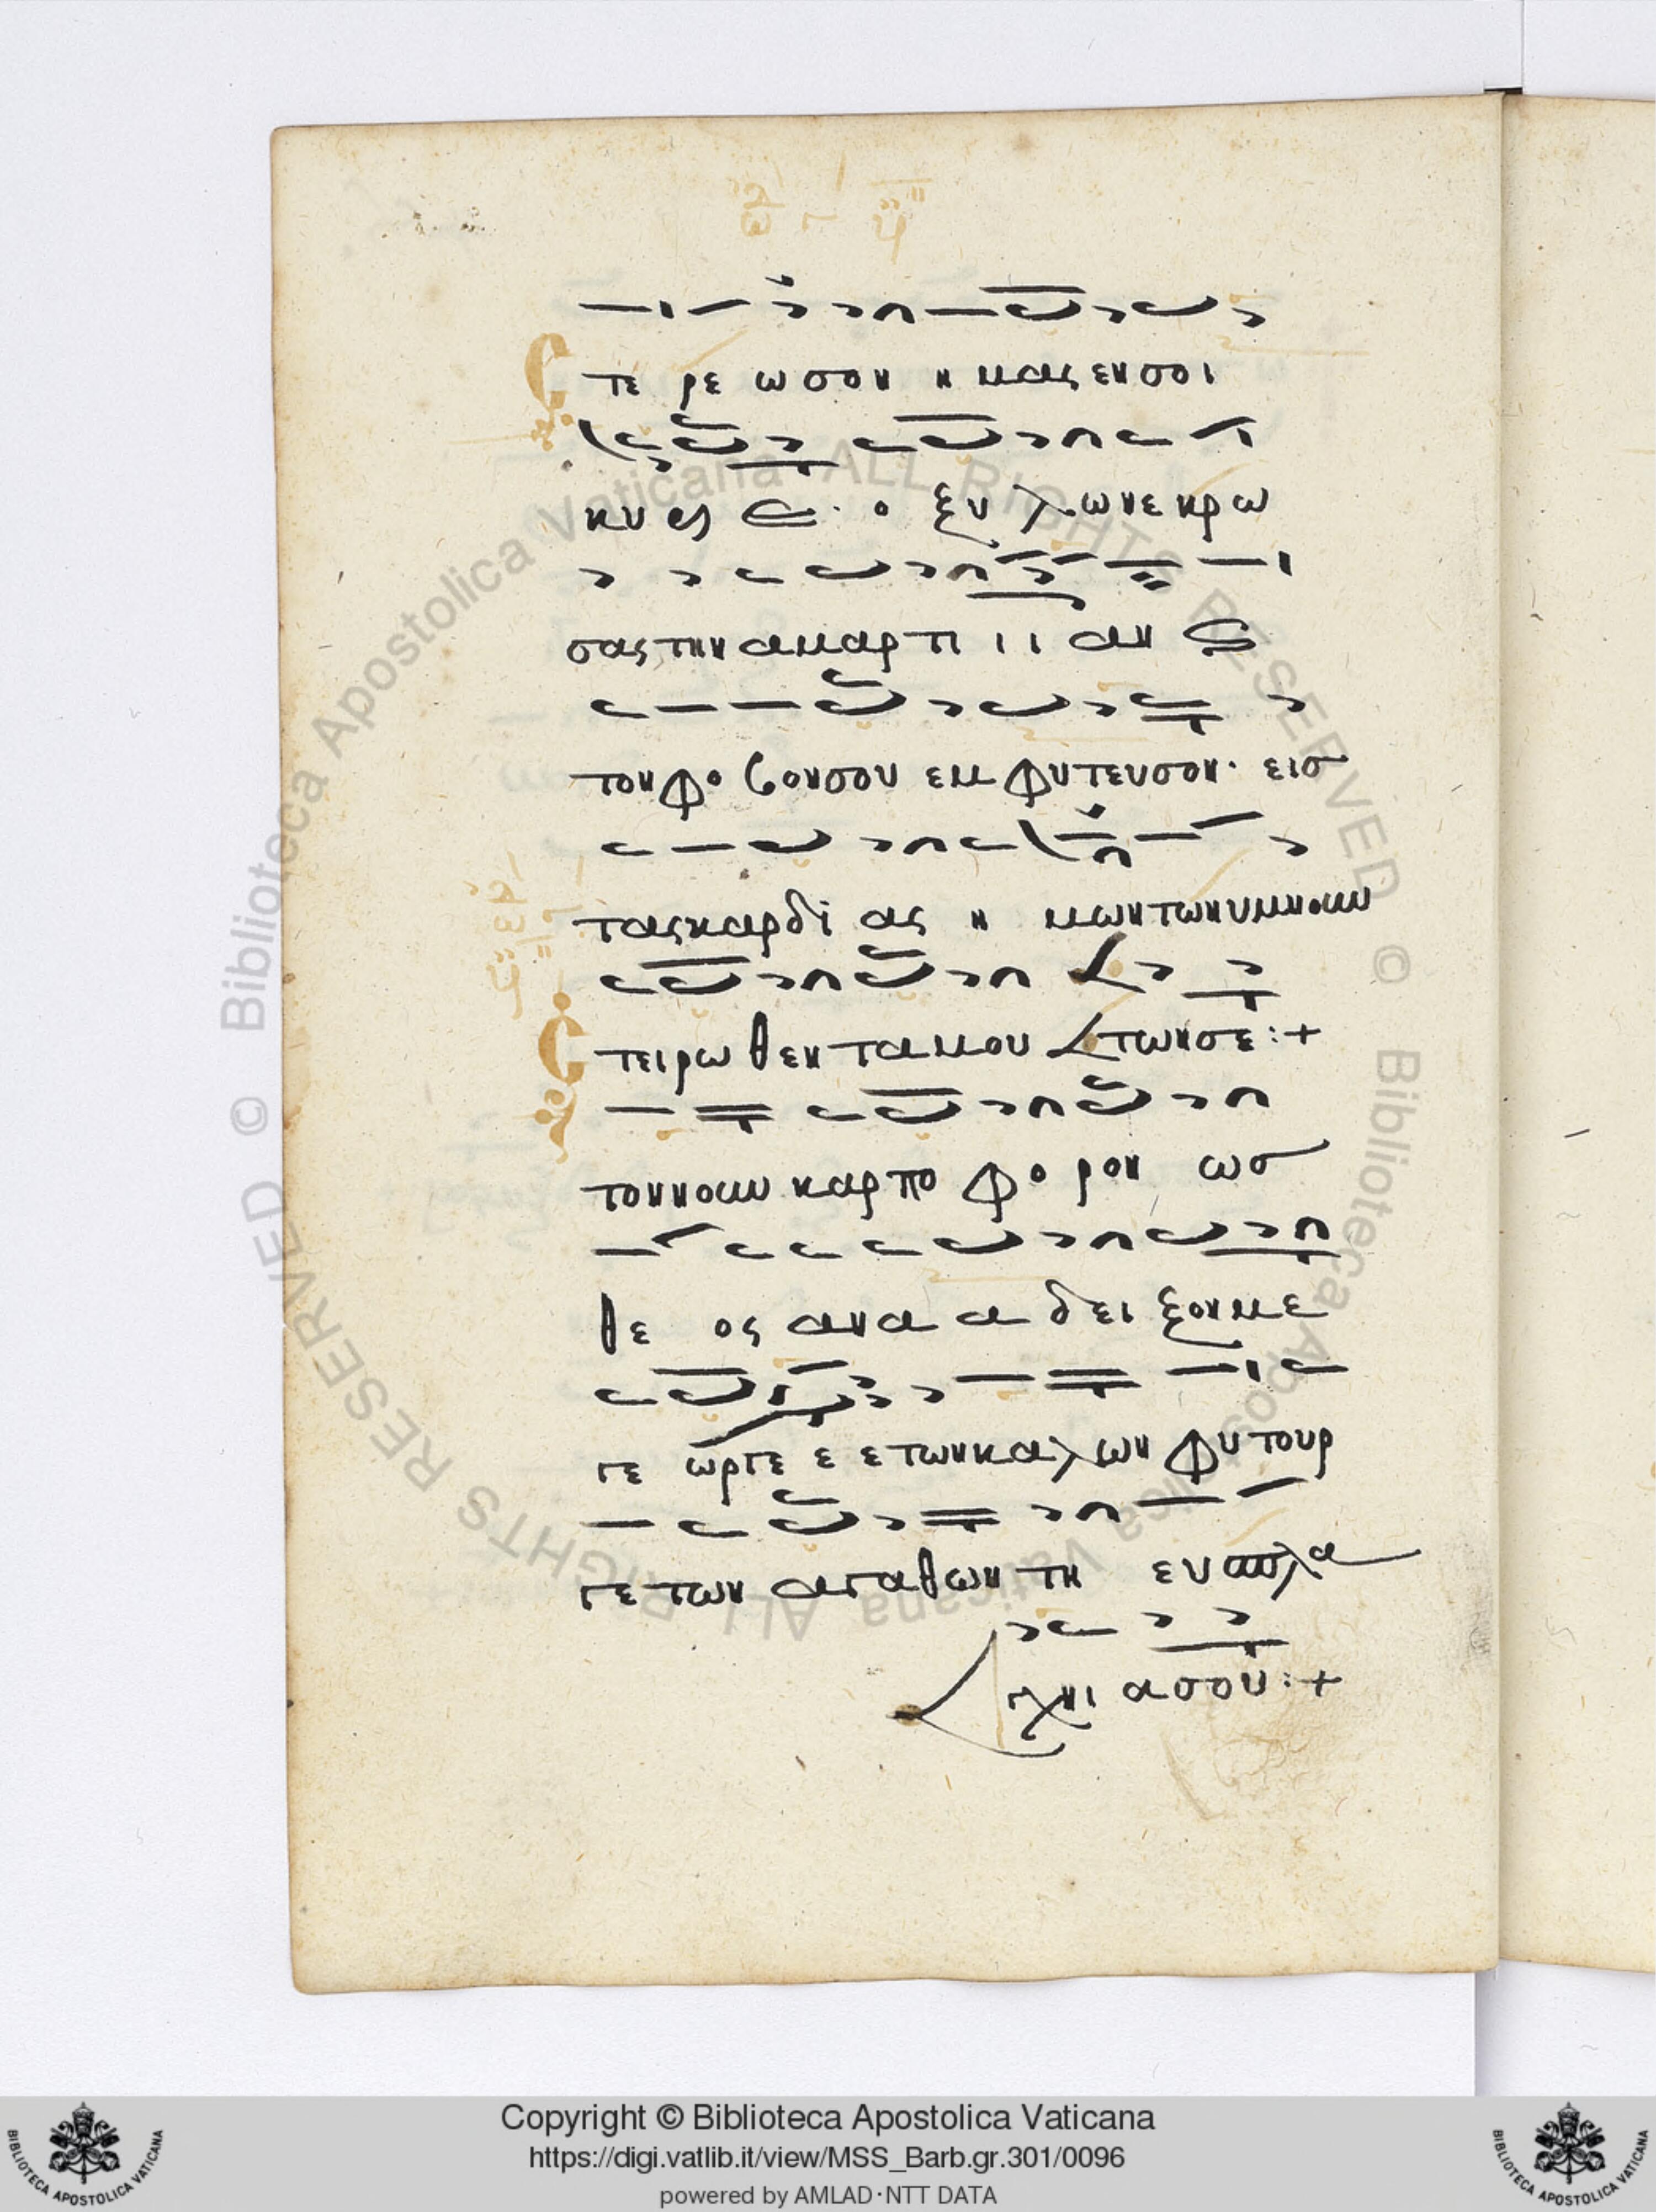 Στε ρε ω σον η μας εν σοι
κυ ρι ε· ο ξυ λω νε κρω
σας την α μαρ τι ι ι αν και
τον φο βον σου εμ φυ τευ σον· εις
τας καρ δι ας η μων των υμνουν
των σε :+
Στειρωθεντα μου
τον νουν καρ πο φο ρον ως
θε ος α να α δει ξον με
γε ωρ γε ε ε των κα λων φυ τουρ
γε των α γα θων τη ευ σπλα
γχνι α σου :+
Copyright © Biblioteca Apostolica Vaticana
https://digi.vatlib.it/view/MSS_Barb.gr.301/0096
powered by AMLAD·NTT DATA